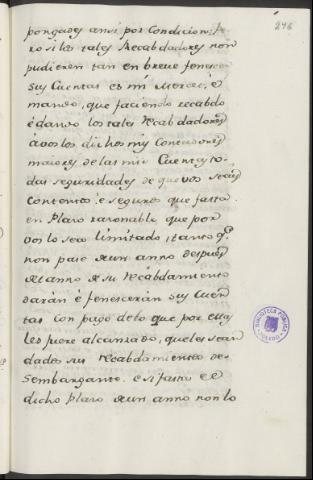 246
pongades ansi por Condicion. Pe
ro si los tales Recabdadores non
pudieren tan en breve fenescer
sus Cuentas es mi Merced, é
mando, que faciendo recabdo
é dando los tales Recabdadores
a vos los dichos mis Contadores
maiores de las mis Cuentas to-
das seguridades de que vos seais
Contentos. e seguros que fasta
en Plazo razonable que por
vos lo sea limitado, tanto q.e
non pase de un anno despues
del anno de su Recabdamiento
daran é fenesceran sus Cuen
tas con pago de lo que por ellas
les fuere alcanzado, que les sean
dados sus Recabdamientos de-
sembargante. e si fasta el
dicho Plazo de un anno non lo
BIBLIOTECA PUBLICA
TOLEDO